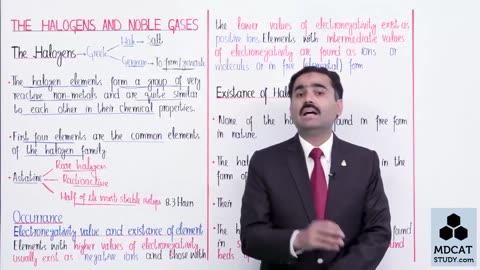 THE HALOGENS AND NOBLE GASES
The Halogens → Greek
Hals → Salt
Gennan → To form/generate
• The halogen elements form a group of very
reactive non-metals and are quite similar
to each other in their chemical properties.
• First four elements are the common elements
of the halogen family.
• Astatine
Rare halogen
Radioactive
Half of its most stable isotope 8.3 Hours
Occurrance
Electronegativity value and existance of element
Elements with higher values of electronegativity
usually exist as negative ions and those with
the lower values of electronegativity exist as
positive ions. Elements with intermediate values
of electronegativity are found as ions or
molecules or in free (elemental) form
Existance of Hal
• None of the h found in free form
in nature.
• The hal in the
form of
• Their
• The h found
in s
beds o
MDCAT
STUDY.com